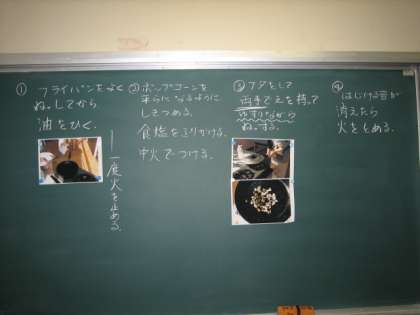 ① フライパンをよく
ねっしてから
油をひく。
一度火を止める。
② ポップコーンを
平らになるように
しきつめる。
食塩をふりかける。
中火でつける。
③ フタをして
両手でえを持って
ゆすりながら
ねっする。
④ はじける音が
消えたら
火をとめる。